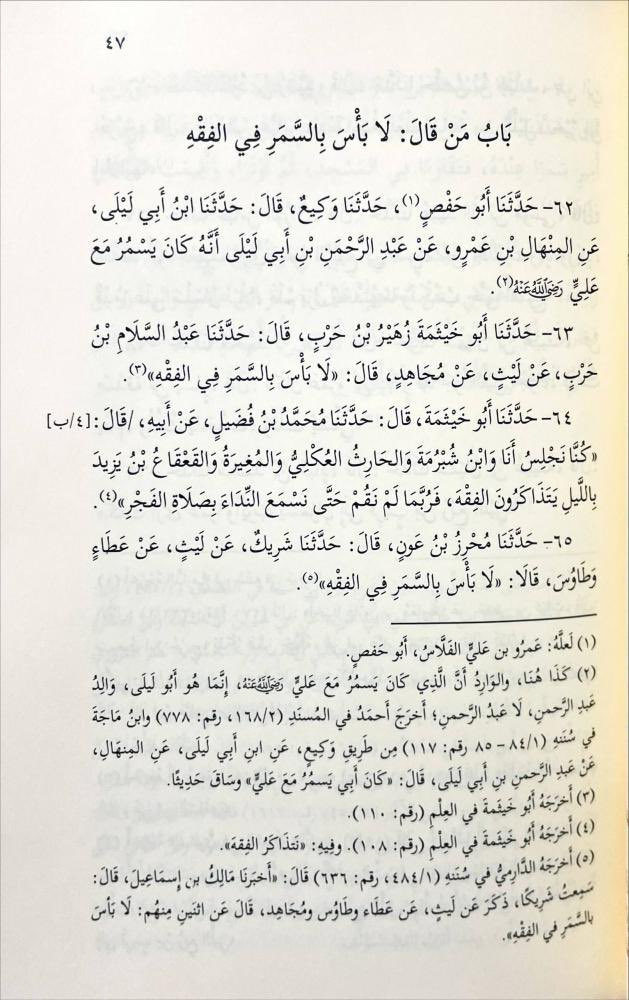 ٤٧
بَابُ مَنْ قَالَ: لَا بَأْسَ بِالسَّمَرِ فِي الفِقْهِ
٦٢- حَدَّثَنَا أَبُو حَفْصٍ(١)، حَدَّثَنَا وَكِيعٌ، قَالَ: حَدَّثَنَا ابْنُ أَبِي لَيْلَى،
عَنِ المِنْهَالِ بْنِ عَمْرٍو، عَنْ عَبْدِ الرَّحْمَنِ بْنِ أَبِي لَيْلَى أَنَّهُ كَانَ يَسْمُرُ مَعَ
عَلِيٍّ رَضِيَ اللَّهُ عَنْهُ(٢).
٦٣- حَدَّثَنَا أَبُو خَيْثَمَةَ زُهَيْرُ بْنُ حَرْبٍ، قَالَ: حَدَّثَنَا عَبْدُ السَّلَامِ بْنُ
حَرْبٍ، عَنْ لَيْثٍ، عَنْ مُجَاهِدٍ، قَالَ: «لَا بَأْسَ بِالسَّمَرِ فِي الفِقْهِ»(٣).
٦٤- حَدَّثَنَا أَبُو خَيْثَمَةَ، قَالَ: حَدَّثَنَا مُحَمَّدُ بْنُ فُضَيلٍ، عَنْ أَبِيهِ، /قَالَ: [٤/ب]
«كُنَّا نَجْلِسُ أَنَا وَابْنُ شُبْرُمَةَ وَالحَارِثُ العُكْلِيُّ وَالمُغِيرَةُ وَالقَعْقَاعُ بْنُ يَزِيدَ
بِاللَّيلِ يَتَذَاكَرُونَ الفِقْهَ، فَرُبَّمَا لَمْ نَقُمْ حَتَّى نَسْمَعَ النِّدَاءَ بِصَلَاةِ الفَجْرِ»(٤).
٦٥- حَدَّثَنَا مُحْرِزُ بْنُ عَونٍ، قَالَ: حَدَّثَنَا شَرِيكٌ، عَنْ لَيْثٍ، عَنْ عَطَاءٍ
وَطَاوُسَ، قَالَا: «لَا بَأْسَ بِالسَّمَرِ فِي الفِقْهِ»(٥).
(١) لَعلَّهُ: عَمرُو بن عَليٍّ الفَلَّاسُ، أَبُو حَفصٍ.
(٢) كَذَا هُنَا، والوَارِدُ أَنَّ الَّذِي كَانَ يَسمُرُ مَعَ عَليٍّ رَضِيَ اللَّهُ عَنْهُ، إِنَّمَا هُو أَبُو لَيلَى، وَالِدُ
عَبدِ الرَّحمنِ، لَا عَبدُ الرَّحمنِ؛ أَخرَجَ أَحمَدُ في المُسنَدِ (١٦٨/٢، رقم: ٧٧٨) وابنُ مَاجَة
في سُنَنهِ (٨٤/١ - ٨٥ رقم: ١١٧) مِن طَرِيقِ وَكِيعٍ، عَنِ ابنِ أَبي لَيلَى، عَنِ المِنهَالِ،
عَنْ عَبدِ الرَّحمنِ بن أَبي لَيلَى، قَالَ: «كَانَ أَبي يَسمُرُ مَعَ عَليٍّ» وسَاقَ حَدِيثًا.
(٣) أَخرَجَهُ أَبُو خَيثَمةَ في العِلْمِ (رقم: ١١٠).
(٤) أَخرَجَهُ أَبُو خَيثَمةَ في العِلْمِ (رقم: ١٠٨). وفِيهِ: «نَتذَاكَرُ الفِقهَ».
(٥) أَخرَجَهُ الدَّارِميُّ في سُنَنهِ (٤٨٤/١، رقم: ٦٣٦) قَالَ: «أَخبَرنَا مَالِكُ بن إِسمَاعِيلَ، قَالَ:
سَمِعتُ شَرِيكًا، ذَكَرَ عَن لَيثٍ، عَن عَطَاء وطَاوُس ومُجَاهِد، قَالَ عَنِ اثنَينِ مِنهُم: لَا بَأسَ
بالسَّمَرِ في الفِقْهِ».